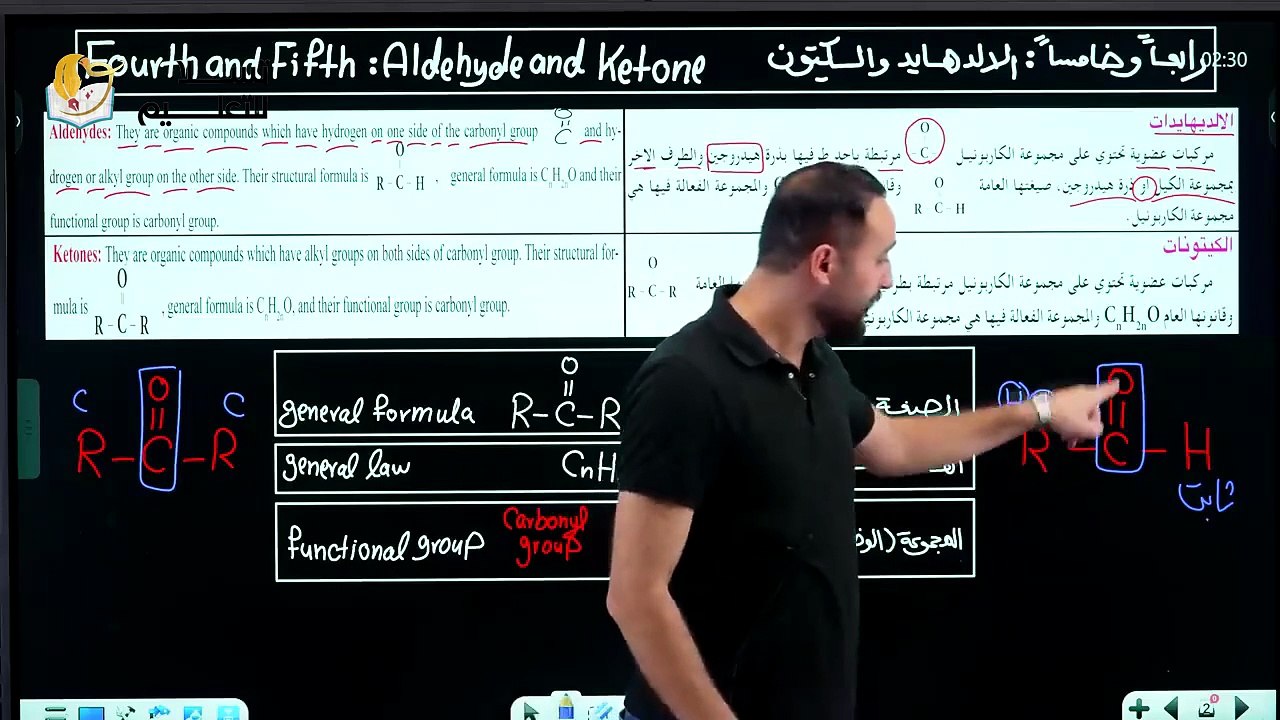 Fourth and Fifth : Aldehyde and Ketone
رابعاً وخامساً : الالدهايد والكيتون
02:30
للتعليم
Aldehydes: They are organic compounds which have hydrogen on one side of the carbonyl group O C and hy-
drogen or alkyl group on the other side. Their structural formula is R - C - H O , general formula is CnH2nO and their
functional group is carbonyl group.
الالديهايدات
مركبات عضوية تحتوي على مجموعة الكاربونيل O - C - مرتبطة باحد طرفيها بذرة هيدروجين والطرف الاخر
بمجموعة الكيل او ذرة هيدروجين، صيغتها العامة O R C - H والمجموعة الفعالة فيها هي
مجموعة الكاربونيل.
Ketones: They are organic compounds which have alkyl groups on both sides of carbonyl group. Their structural for-
mula is O R - C - R , general formula is CnH2nO, and their functional group is carbonyl group.
الكيتونات
مركبات عضوية تحتوي على مجموعة الكاربونيل مرتبطة العامة O R - C - R
وقانونها العام CnH2nO والمجموعة الفعالة فيها هي مجموعة
C C
O
R – C – R
general formula R – C – R O
الصيغة
general law CnH
functional group Carbonyl group
المجموعة
H
O
R – C – H
ثابت
2